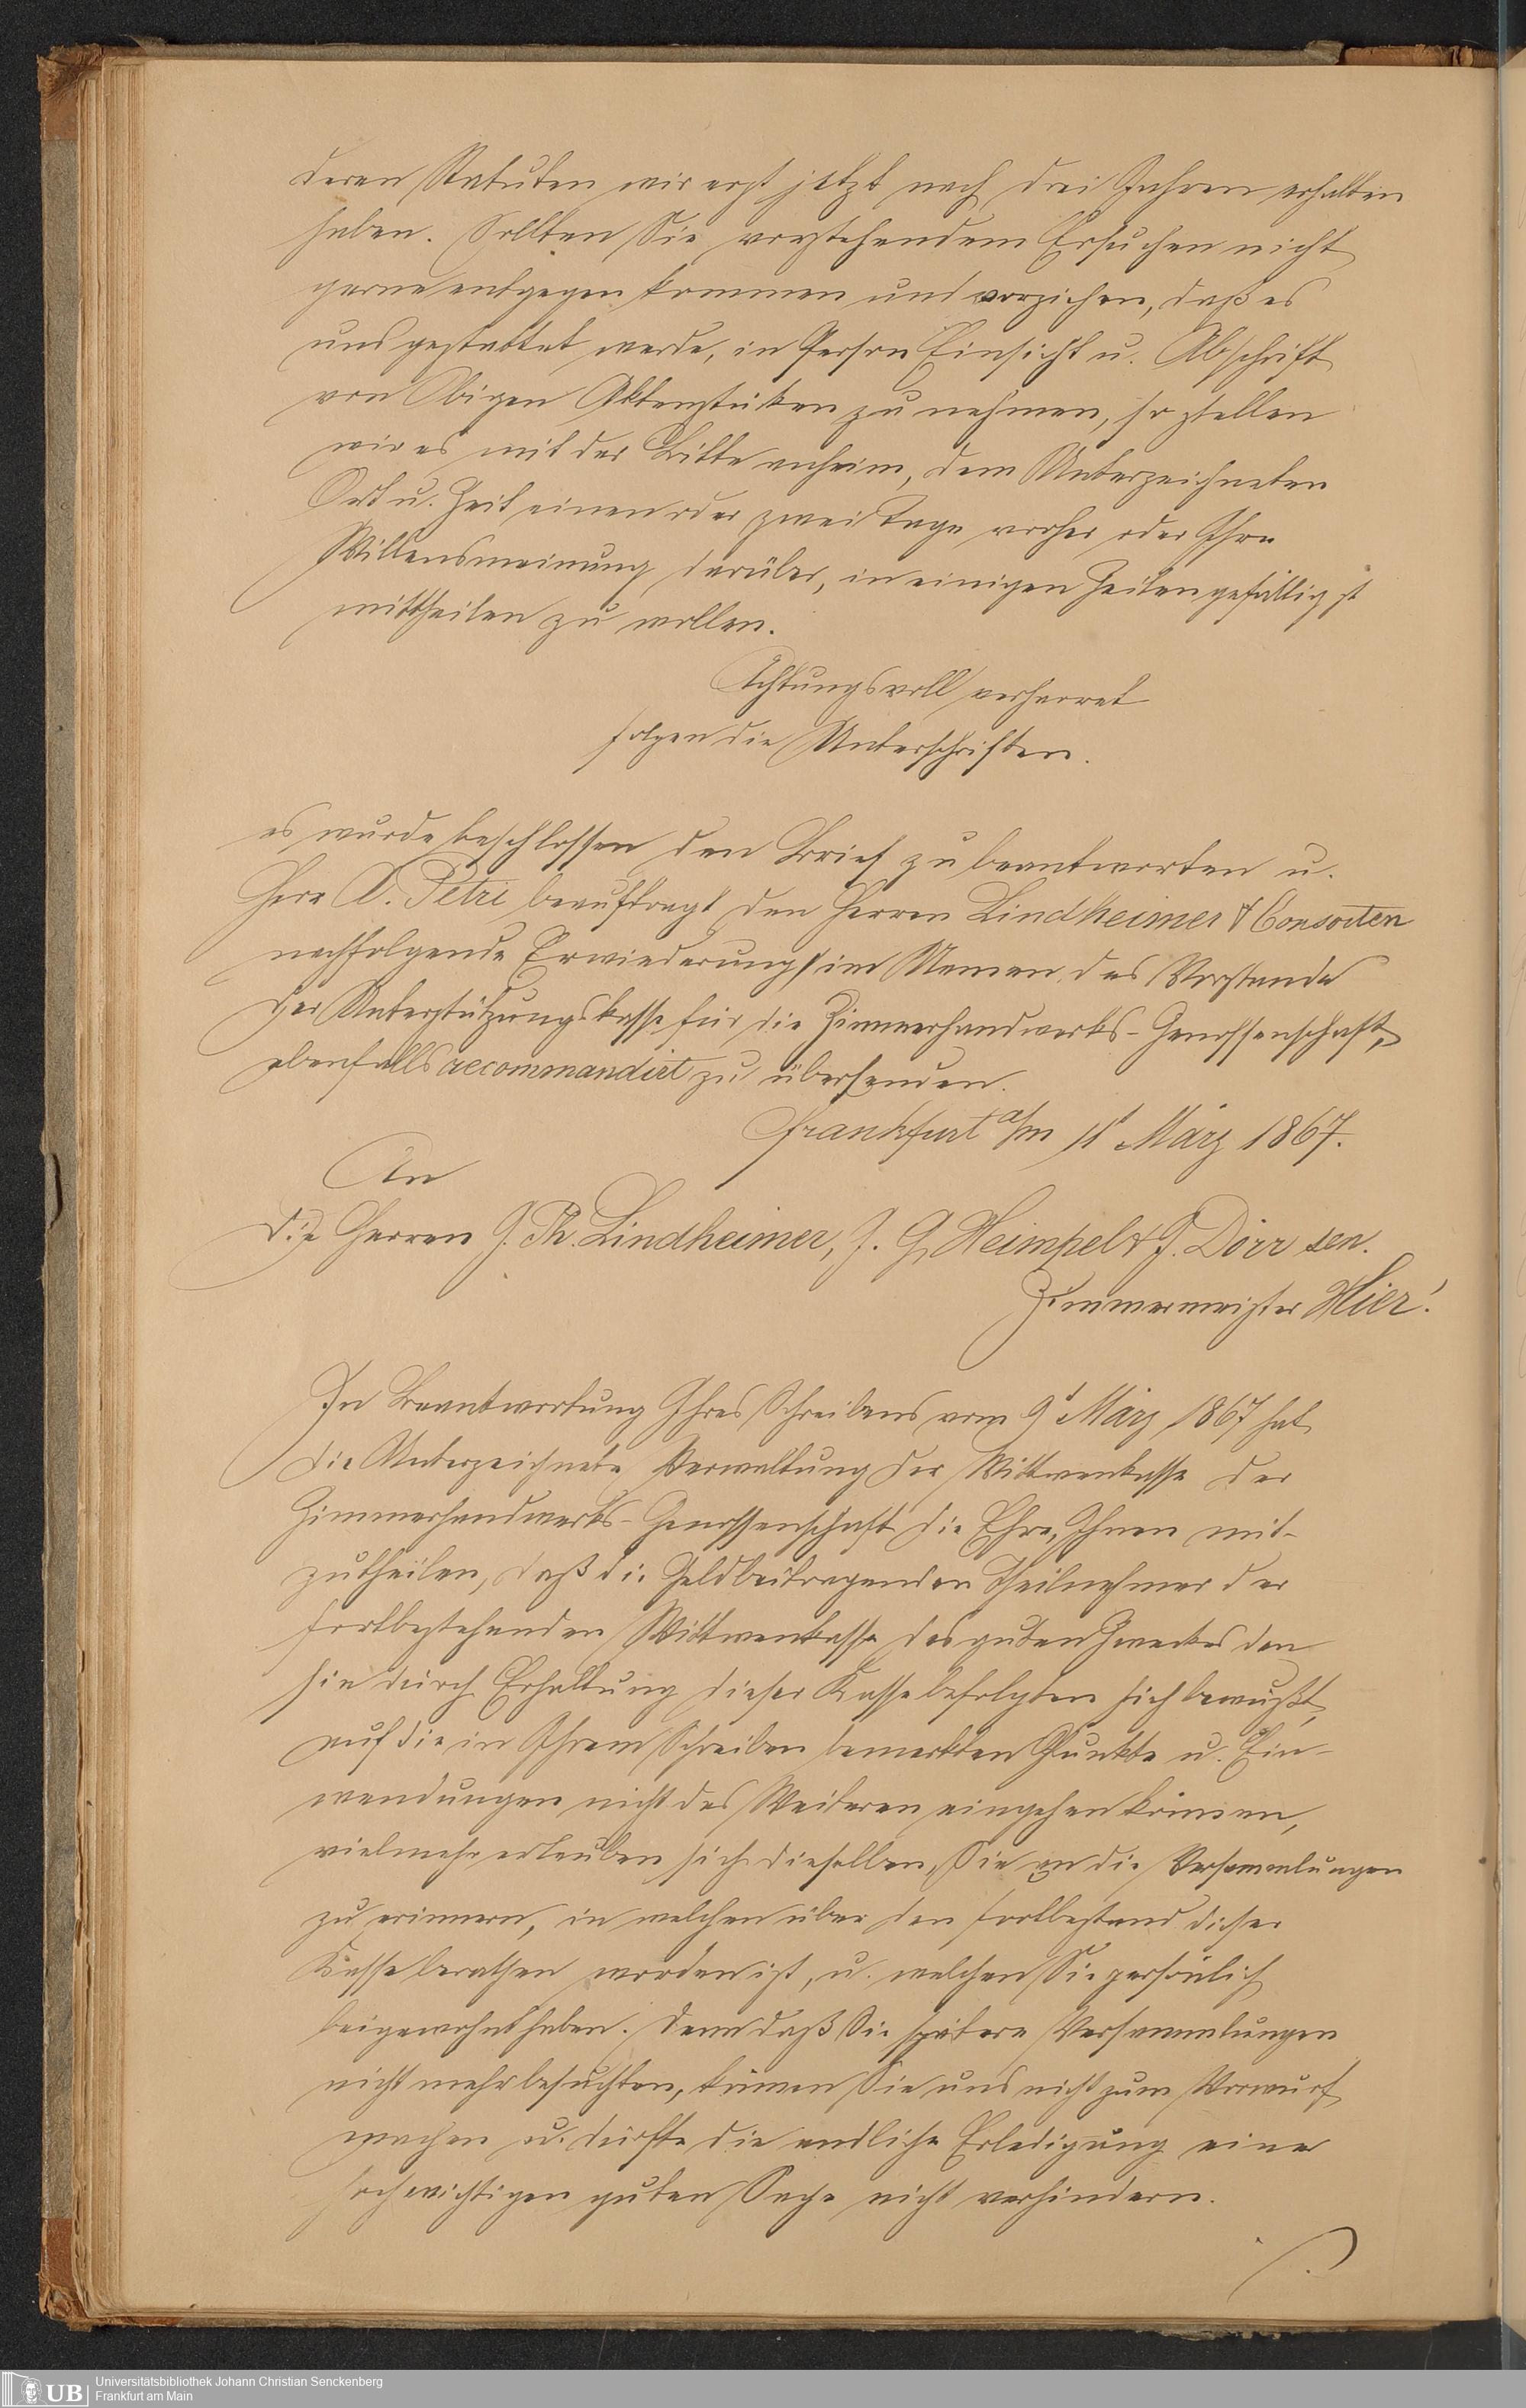 deren Statuten wir erst jetzt nach drei Jahren erhalten
haben. Sollten Sie vorstehendem Ersuchen nicht
gerne entgegen kommen und vorziehen, daß es
uns gestattet werde, in Person Einsicht u. Abschrift
von Obigen Aktenstüken zu nehmen, so stellen
wir es mit der Bitte anheim, dem Unterzeichneten
Ort u. Zeit einen oder zwei Tage vorher oder Ihre
Willensmeinung darüber, in einigen Zeilen gefälligst
mittheilen zu wollen.
Achtungsvoll verharret
folgen die Unterschriften.
es wurde beschlossen den Brief zu beantworten u.
Herr A. Petri beauftragt den Herren Lindheimer & Consorten
nachfolgende Erwiederung im Namen des Vorstandes
der Unterstützungskasse für die Zimmerhandwerks-Genossenschaft,
ebenfalls recommandirt zu übersenden.
Frankfurt a/m 11t März 1867.
An
die Herren J. Th. Lindheimer, J. G. Heimpel & J. Dörr sen.
Zimmermeister Hier!
In Beantwortung Ihres Schreibens vom 9t März 1867 hat
die Unterzeichnete Verwaltung der Wittwenkasse der
Zimmerhandwerks-Genossenschaft die Ehre, Ihnen mit-
zutheilen, daß die Geldbeitragenden Theilnehmer der
fortbestehenden Wittwenkasse des guten Zweckes den
sie durch Erhaltung dieser Kasse befolgten sich bewußt,
auf die in Ihrem Schreiben bemerkten Punkte u. Ein-
wendungen nicht des Weiteren eingehen können,
vielmehr erlauben sich dieselben, Sie an die Versammlungen
zu erinnern, in welchen über den Fortbestand dieser
Kasse berathen worden ist, u. welchen Sie persönlich
beigewohnt haben. Denn daß Sie spätere Versammlungen
nicht mehr besuchten, können Sie uns nicht zum Vorwurf
machen u. dürfte die endliche Erledigung einer
hochwichtigen guten Sache nicht verhindern.
UB
Universitätsbibliothek Johann Christian Senckenberg
Frankfurt am Main